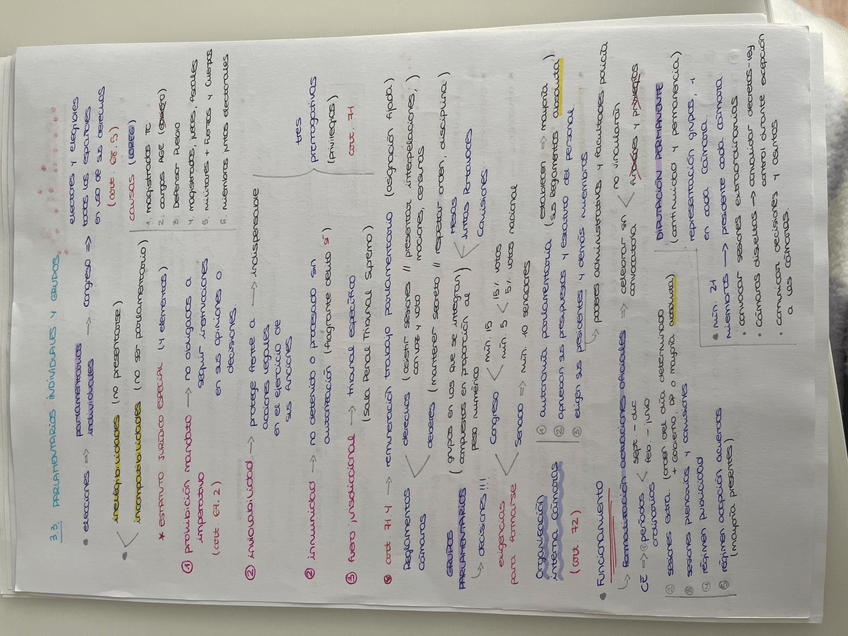 3.3. PARLAMENTARIOS INDIVIDUALES Y GRUPOS.
• elecciones => parlamentarios individuales → congreso => electores y elegibles
todos los españoles
en uso de sus derechos
(art. 68.5)
inelegibilidades (no presentarse)
incompatibilidades (no ser parlamentario)
causas (LOREG)
1. magistrados TC
2. cargos AGE
3. Defensor Pueblo
4. magistrados, jueces, fiscales
5. militares + Fuerzas y Cuerpos
6. miembros juntas electorales
* ESTATUTO JURÍDICO ESPECIAL (4 elementos)
① prohibición mandato imperativo → no obligados a
seguir instrucciones
en sus opiniones o
decisiones
(art. 67.2)
② inviolabilidad → protege frente a → indispensable
acciones legales
en el ejercicio de
sus funciones
② inmunidad → no detenido o procesado sin
autorización (flagrante delito sí)
③ fuero jurisdiccional → tribunal específico
(Sala Penal Tribunal Supremo)
tres
prerrogativas
(privilegios)
art. 71
art 71.4 → remuneración trabajo parlamentario (asignación fijada)
Reglamentos
cámaras
derechos (asistir sesiones // presentar interpelaciones,
con voz y voto mociones, censuras)
deberes (mantener secreto // respetar orden, disciplina)
GRUPOS
PARLAMENTARIOS (grupos en los que se integran)
compuestos en proporción al
peso numérico
→ decisiones!!!
Mesas
Juntas Portavoces
Comisiones
exigencias
para formarse
Congreso
mín 15
mín 5 15% votos
5% votos nacional
Senado => mín. 10 senadores
Organización
interna cámaras
(art. 72)
① autonomía parlamentaria (establecen => mayoría
sus reglamentos absoluta)
② aprueban sus presupuestos y estatuto del personal
③ eligen sus presidentes y demás miembros
→ poderes administrativos y facultades policía
• Funcionamiento
→ formalización actuaciones oficiales → celebrar sin
convocatoria no vincularán
CE → ① períodos
ordinarios sept - dic
feb - junio
② sesiones extra. (orden del día determinado
+ Gobierno, DP o mayoría absoluta)
③ sesiones plenarias y comisiones
④ régimen publicidad
⑤ régimen adopción acuerdos
(mayoría presentes)
DIPUTACIÓN PERMANENTE
(continuidad y permanencia)
representación grupos, 1
en cada cámara
• mín. 21
miembros → presidente cada cámara
• convocar sesiones extraordinarias
• Cámaras disueltas → convalidar decretos-ley
control durante excepción
• comunican decisiones y asuntos
a las cámaras.